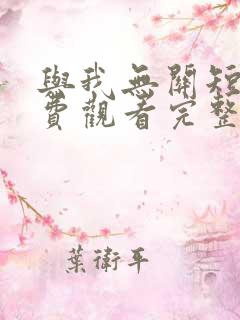 與我無關短
費觀看完整
葉衛平